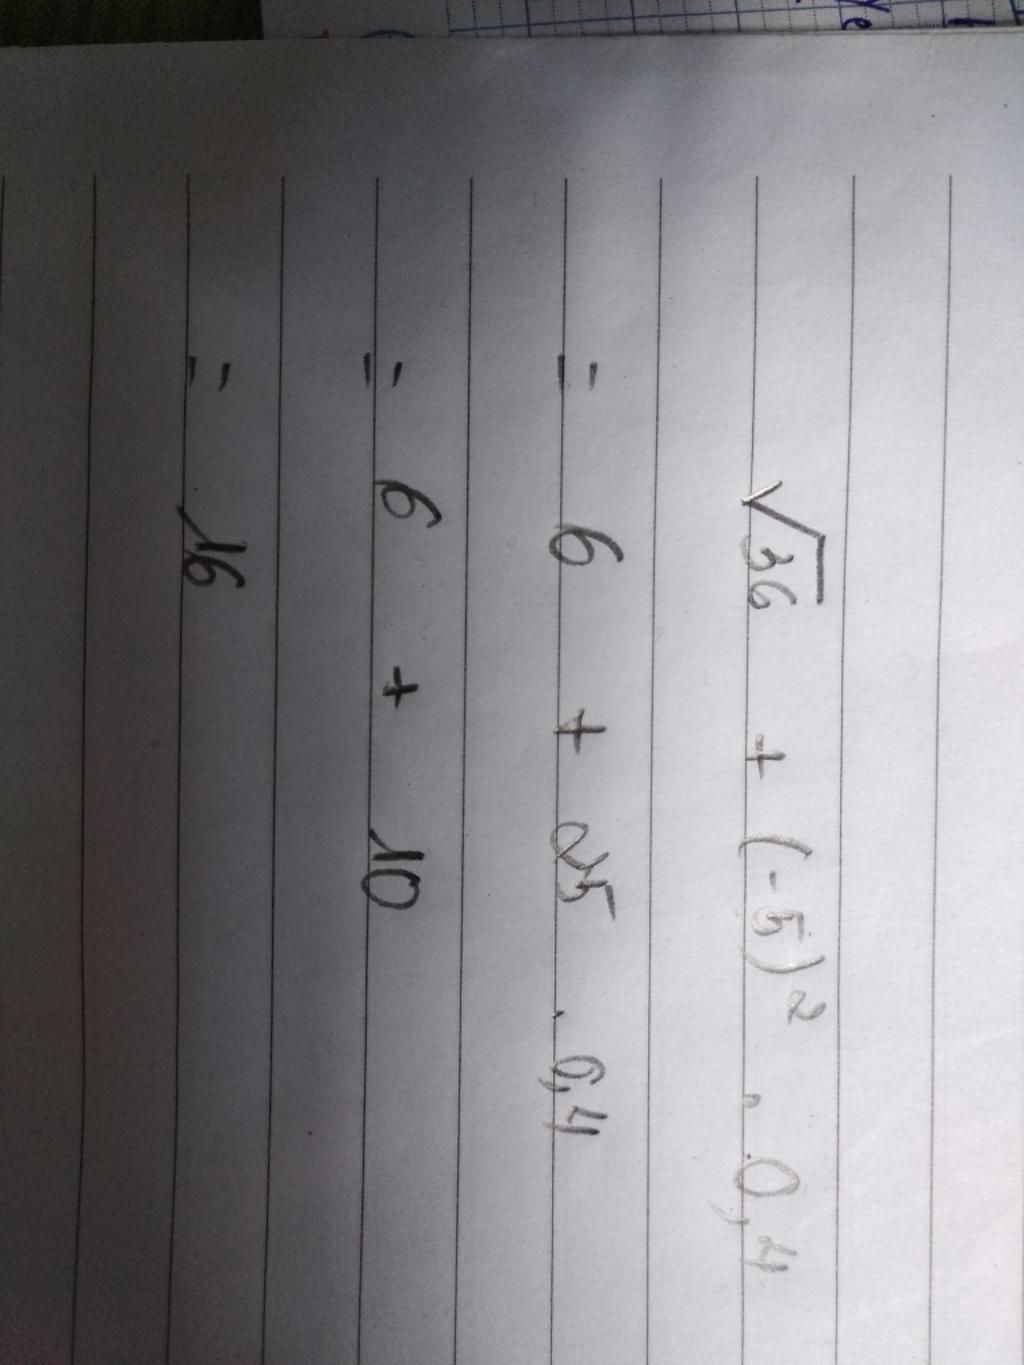 √36 + (-5)² . 0,4
= 6 + 25 . 0,4
= 6 + 10
= 16